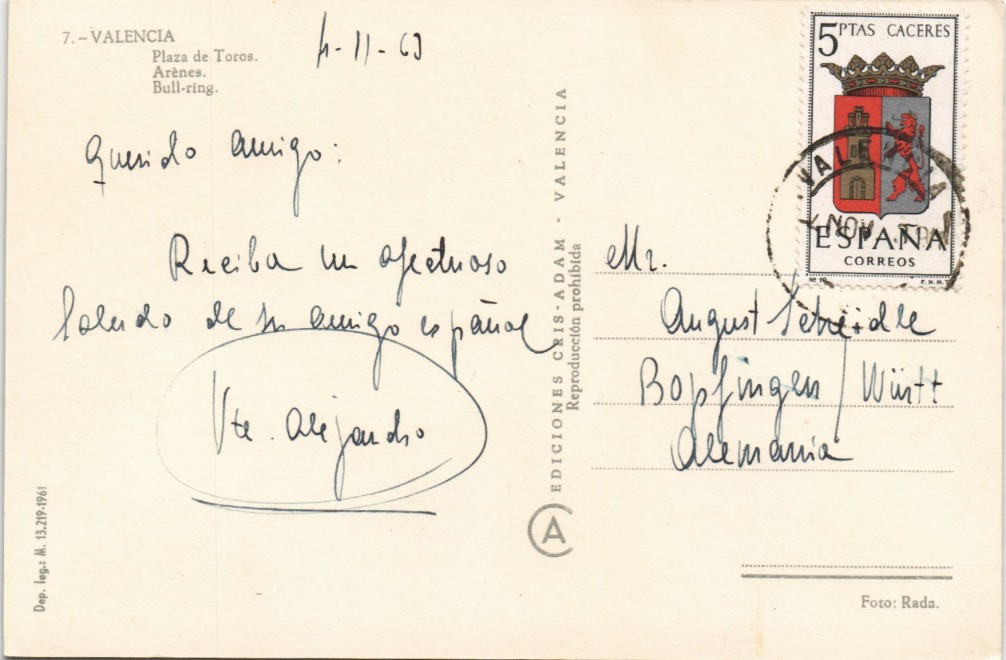 7.-VALENCIA
Plaza de Toros.
Arènes.
Bull-ring.
4-11-63
Querido amigo:
Reciba un afectuoso
Saludo de su amigo español
Vte. Alejandro
Dep. leg.: M. 13.219-1961
EDICIONES CRIS-ADAM - VALENCIA
Reproducción prohibida
A
5 PTAS CACERES
ESPAÑA
CORREOS
Nº 10
F.N.M.T.
VALENCIA
NOV
Mr.
August
Bopfingen/Württ
Alemania
Foto: Rada.